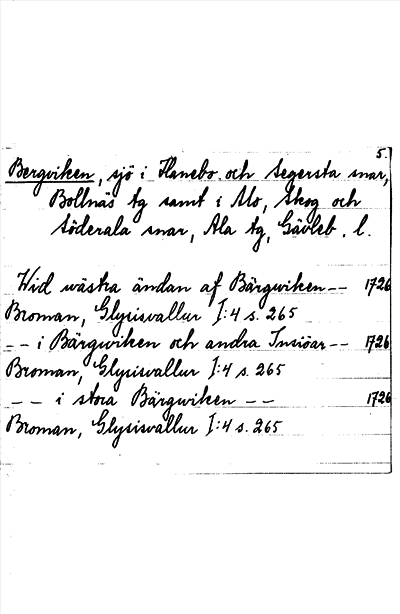 5.
Bergviken, sjö i Hanebo och Segersta snar,
Bollnäs tg samt i Mo, Skog och
Söderala snar, Ala tg, Gävleb. l.
Wid wästra ändan af Bärgwiken -- 1726
Broman, Glysisvallur I:4 s. 265
-- i Bärgwiken och andra Insiöar -- 1726
Broman, Glysisvallur I:4 s. 265
-- i stora Bärgwiken -- 1726
Broman, Glysisvallur I:4 s. 265